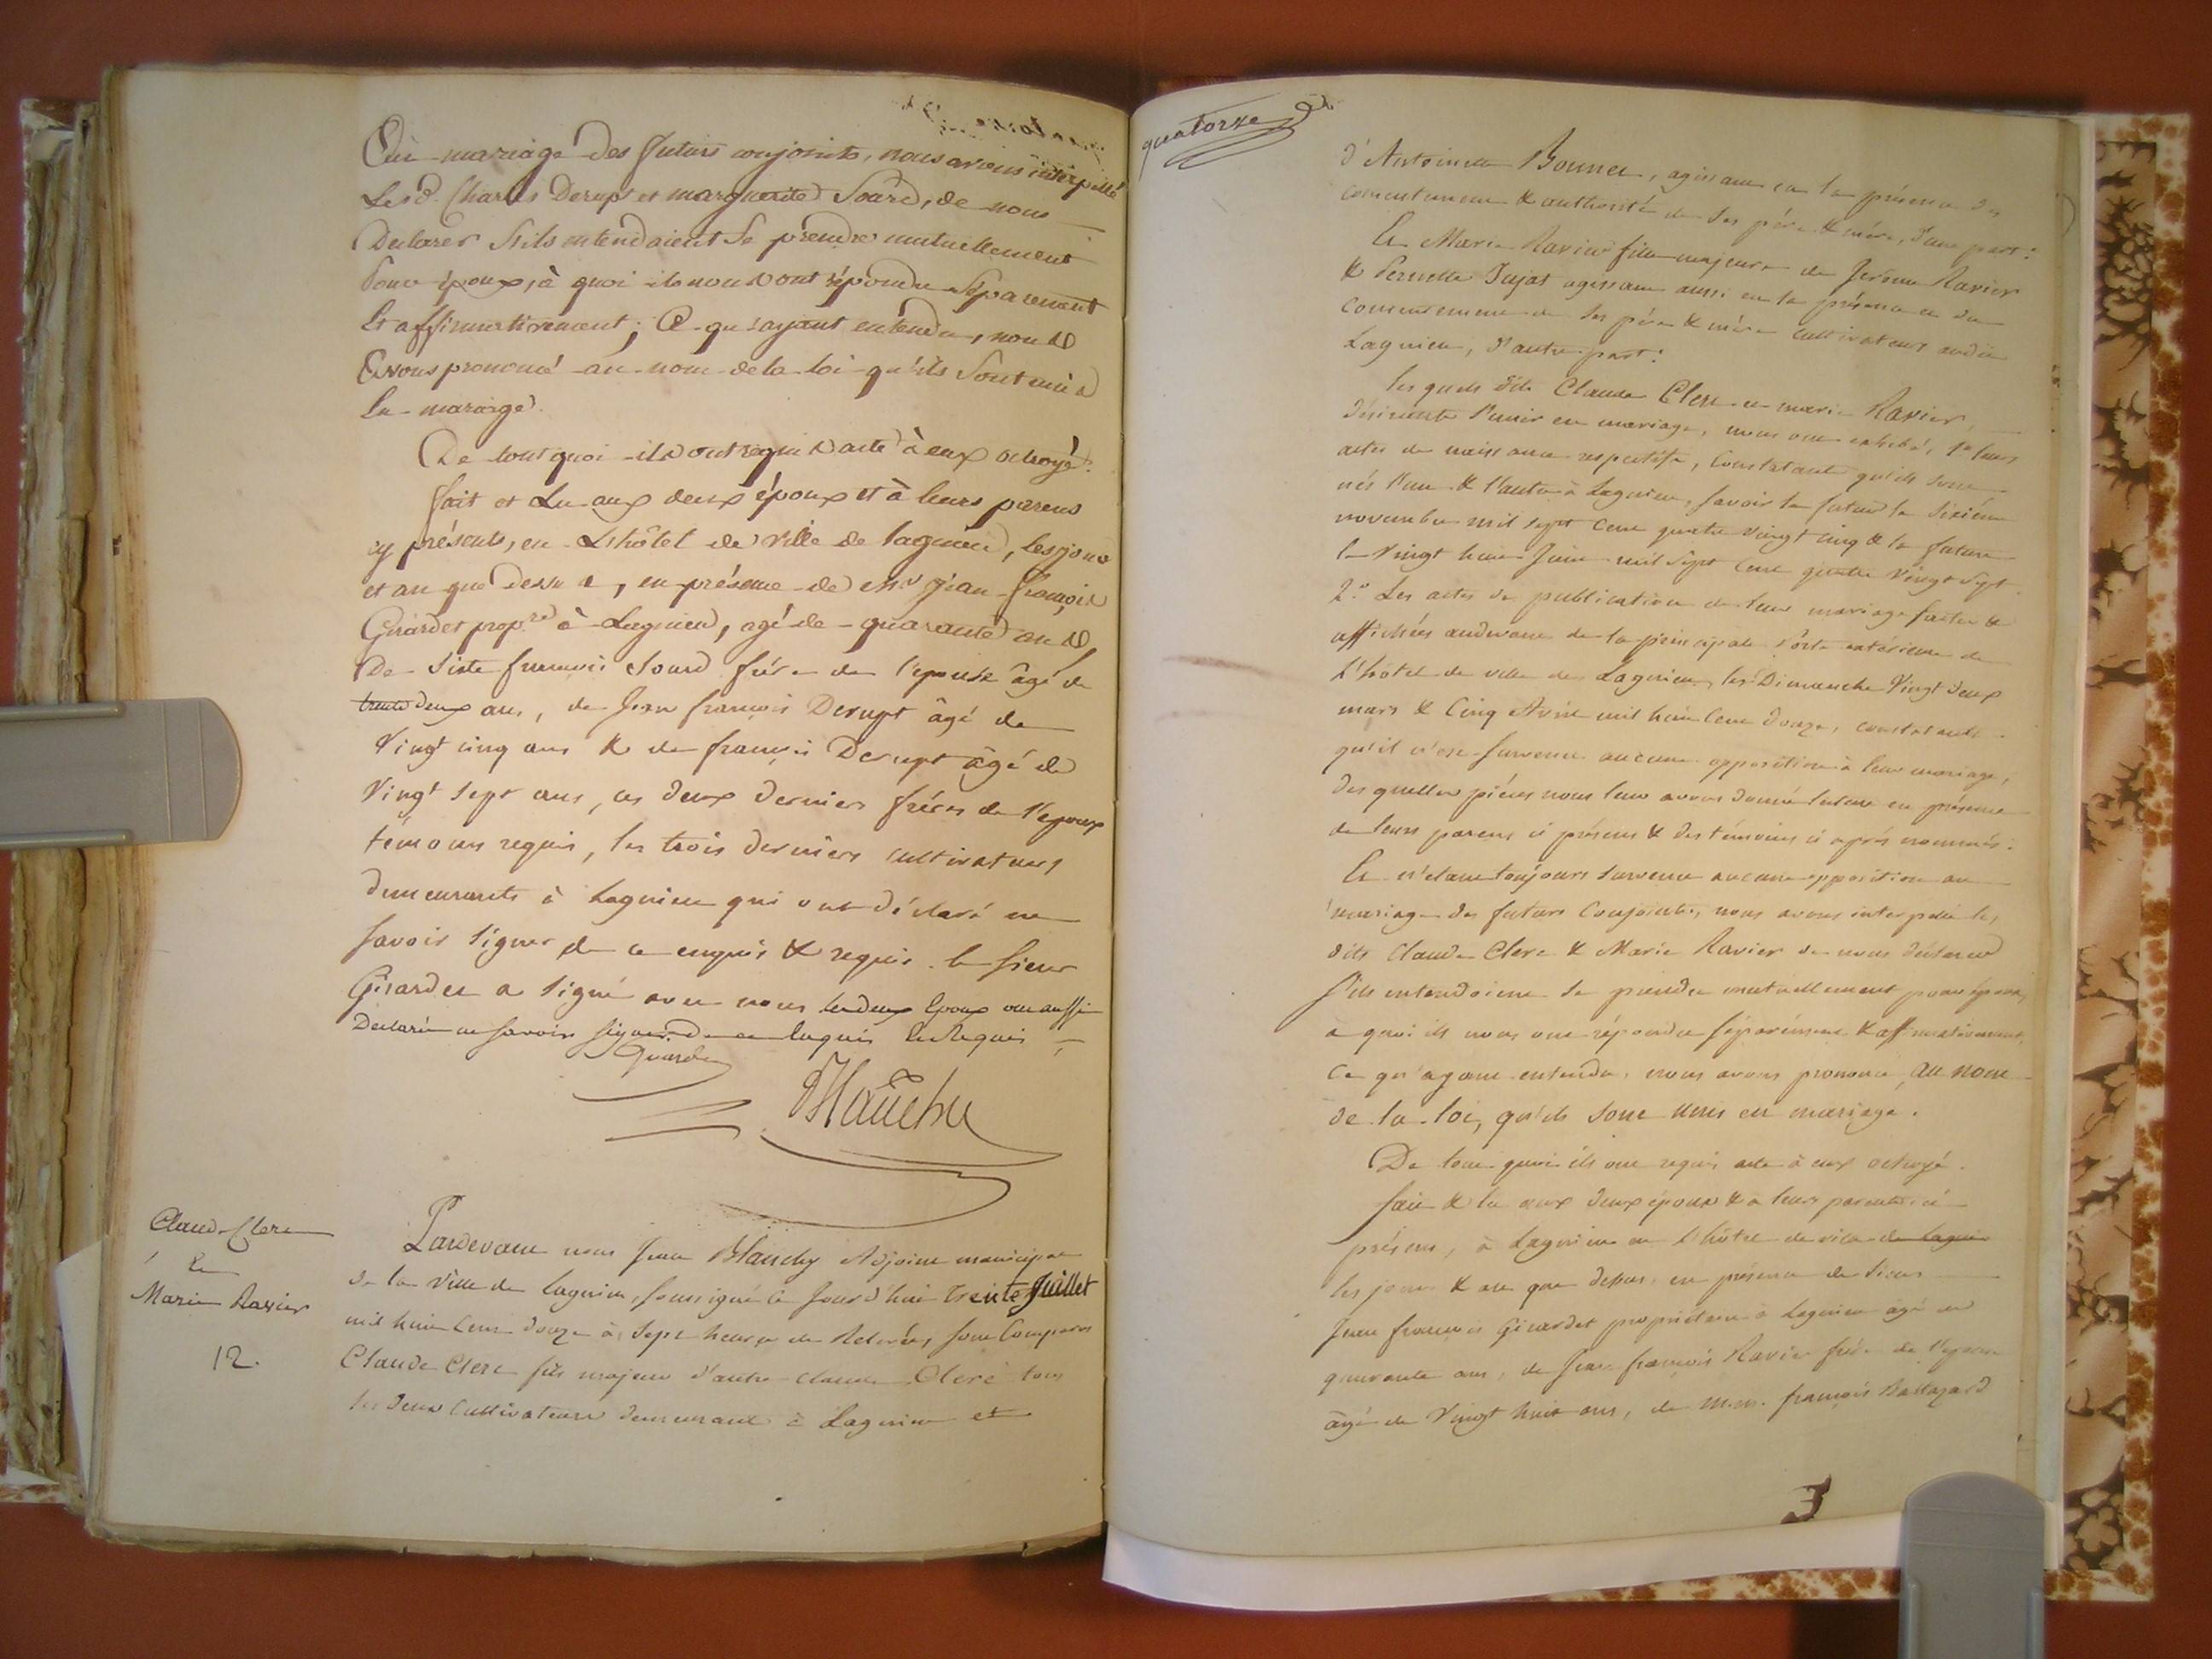 Au mariage des futurs conjoints, nous avons interpellé
Lesd. Charles Derupt et marguerite Sourd, de nous
Declarer S'ils entendaient Se prendre mutuellement
Pour époux, à quoi ils nous ont répondu Séparement
Et affirmativement; Ce qu'ayant entendu, nous
Avons prononcé au nom de la loi qu'ils Sont unis
En mariage.
De tout quoi ils ont requis acte à eux octroyé.
fait et Lu aux deux époux et à leurs parens
cy présents, en L'hôtel de Ville de lagnieu, les jour
et an que dessus, en présence de Mr jean françois
Girardet propre à Lagnieu, agé de quarante ans
De Sixte françois Sourd frére de l'epouse âgé de
trente deux ans, de Jean françois Derupt âgé de
Vingt cinq ans & de françois Derupt âgé de
Vingt sept ans, ces deux derniers fréres de l'epoux
témoins requis, les trois derniers cultivateurs
demeurants à Lagnieu qui ont déclaré ne
savoir signer de ce enquis & requis. le sieur
Girardet a signé avec nous les deux Epoux ont aussi
Declaré ne savoir signer de ce Enquis Et Requis
Girardet
Blanchy
Claude Clerc
Et
Marie Ravier
12.
Pardevant nous Jean Blanchy Adjoint municipal
de la Ville de lagnieu, soussigné Ce Jourd'hui Trente Juillet
mil huit Cent douze à Sept heures de Relevées, sont Comparus
Claude Clerc fils majeur d'autre Claude Clerc tous
les deux Cultivateurs demeurant à Lagnieu et
quatorze
d'Antoinette Bonnet, agissant en la présence du
consentement & authorité de ses pére & mére, d'une part:
Et Marie Ravier fille majeure de Jerome Ravier
& Pernette Jujat agissant aussi en la présence et du
consentement de ses pére & mére cultivateurs audit
Lagnieu, d'autre part:
lesquels dits Claude Clerc et marie Ravier,
désirants s'unir en mariage, nous ont exhibé, 1° leurs
actes de naissance respectifs, Constatant qu'ils sont
nés l'un & l'autre à Lagnieu, savoir le futur le sixième
novembre mil sept cent quatre vingt cinq & la future
le Vingt huit Juin mil sept cent quatre Vingt Sept
2° Les actes de publication de leur mariage faites &
affichées audevant de la principale porte extérieure de
L'hôtel de ville de Lagnieu, les Dimanche Vingt deux
mars & Cinq Avril mil huit Cent douze, constatants
qu'il n'est survenu aucune opposition à leur mariage;
desquelles piéces nous leur avons donné lecture en présence
de leurs parens ci présens & des témoins ci aprés nommés:
Et n'étant toujours survenu aucune opposition au
mariage des futurs Conjoints, nous avons interpellé les
dits Claude Clerc & Marie Ravier de nous déclarer
s'ils entendoient se prendre mutuellement pour époux,
à quoi ils nous ont répondu séparément & affirmativement,
Ce qu'ayant entendu, nous avons prononcé, au nom
de la loi, qu'ils sont unis en mariage.
De tout quoi ils ont requis acte à eux octroyé.
fait & lu aux deux époux & a leurs parents ci
présens, à Lagnieu en l'hôtel de ville de Lagnieu
les jour & an que dessus, en présence de Sieur
Jean françois Girardet propriétaire à Lagnieu agé de
quarante ans, de Jean françois Ravier frére de l'epouse
âgé de Vingt huit ans, de m.m. françois Baltazard
3